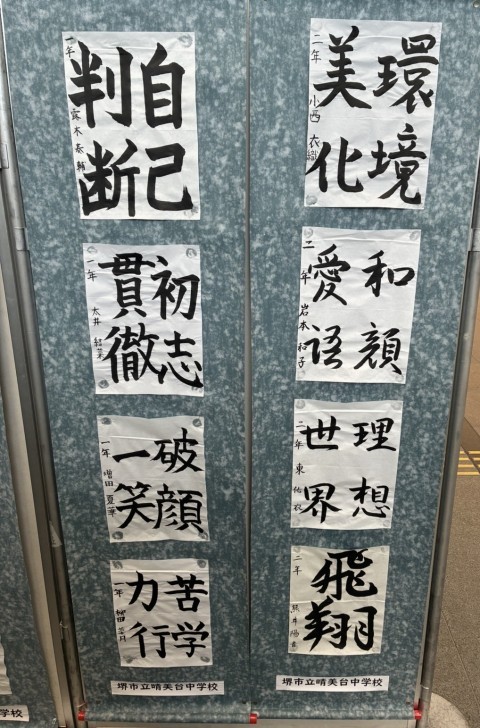 環境
美化
二年 小西 衣織
和顔
愛語
二年 岩本 和子
理想
世界
二年 東
飛翔
二年
堺市立晴美台中学校
自己
判断
一年
初志
貫徹
一年 太井
破顔
一笑
一年 増田
苦学
力行
一年
堺市立晴美台中学校
学校